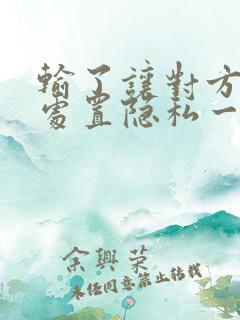 輸了讓對方
處置隐私一
余興荣
未经同意禁止转载